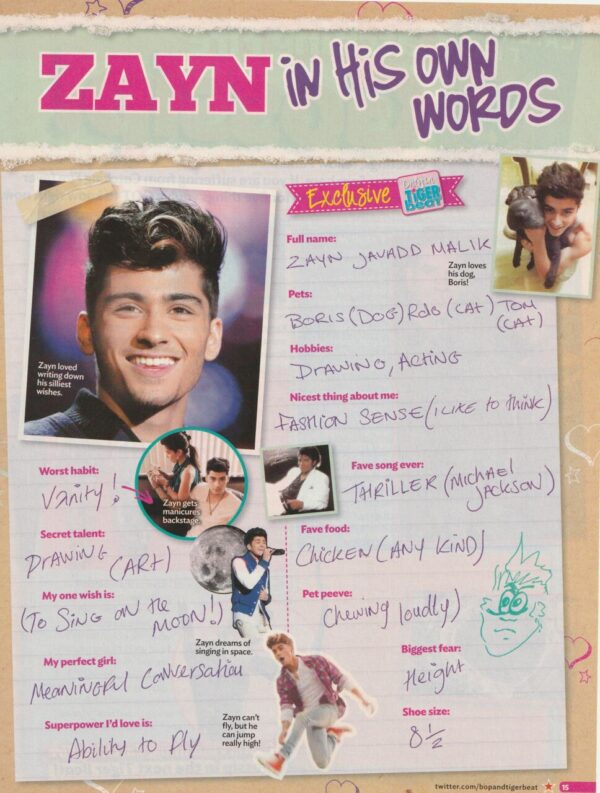 ZAYN in His OWN
WORDS
Exclusive
TIGER
BEAT
Full name:
ZAYN JAVADD MALIK
Zayn loves
his dog,
Boris!
Pets:
BORIS (DOG) Rolo (CAT) TOM
(CAT)
Hobbies:
DRAWING, ACTING
Nicest thing about me:
FASHION SENSE (I LIKE to think)
Zayn loved
writing down
his silliest
wishes.
Worst habit:
Vanity!
Zayn gets
manicures
backstage.
Fave song ever:
THRILLER (MICHAEL
JACKSON)
Secret talent:
DRAWING (ART)
Fave food:
Chicken (ANY KIND)
My one wish is:
(To SING ON the
MOON!)
Zayn dreams of
singing in space.
Pet peeve:
Chewing loudly)
My perfect girl:
Meaningful Conversation
Biggest fear:
Height
Superpower I'd love is:
Ability to Fly
Zayn can't
fly, but he
can jump
really high!
Shoe size:
8 1/2
twitter.com/bopandtigerbeat 15